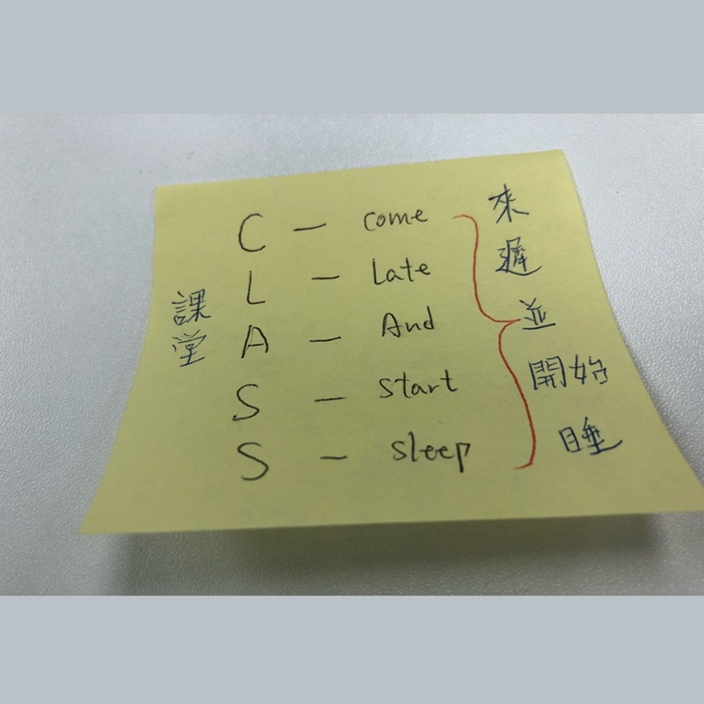 課堂
C - Come
L - Late
A - And
S - Start
S - Sleep
來
遲
並
開始
睡